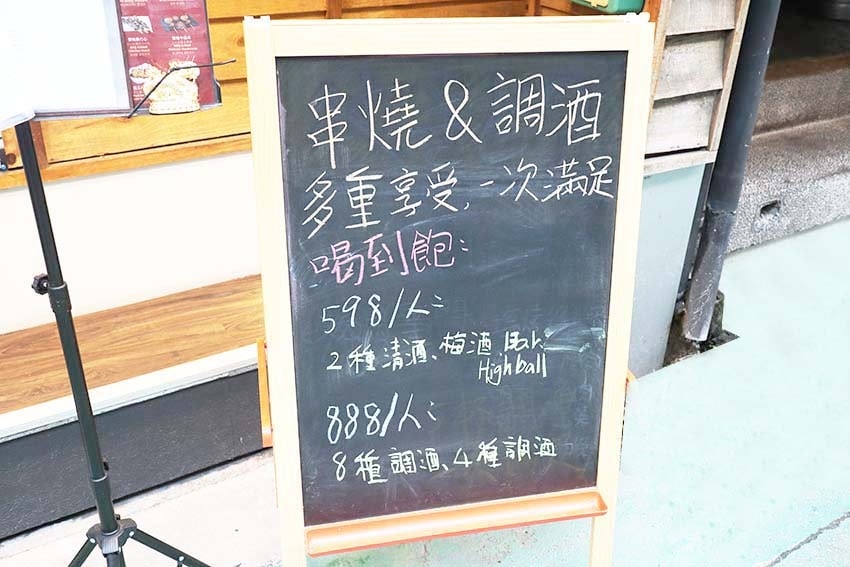 串燒&調酒
多重享受,一次滿足
喝到飽:
598/人:
2種清酒、梅酒、Bar.
Highball
888/人:
8種調酒、4種調酒